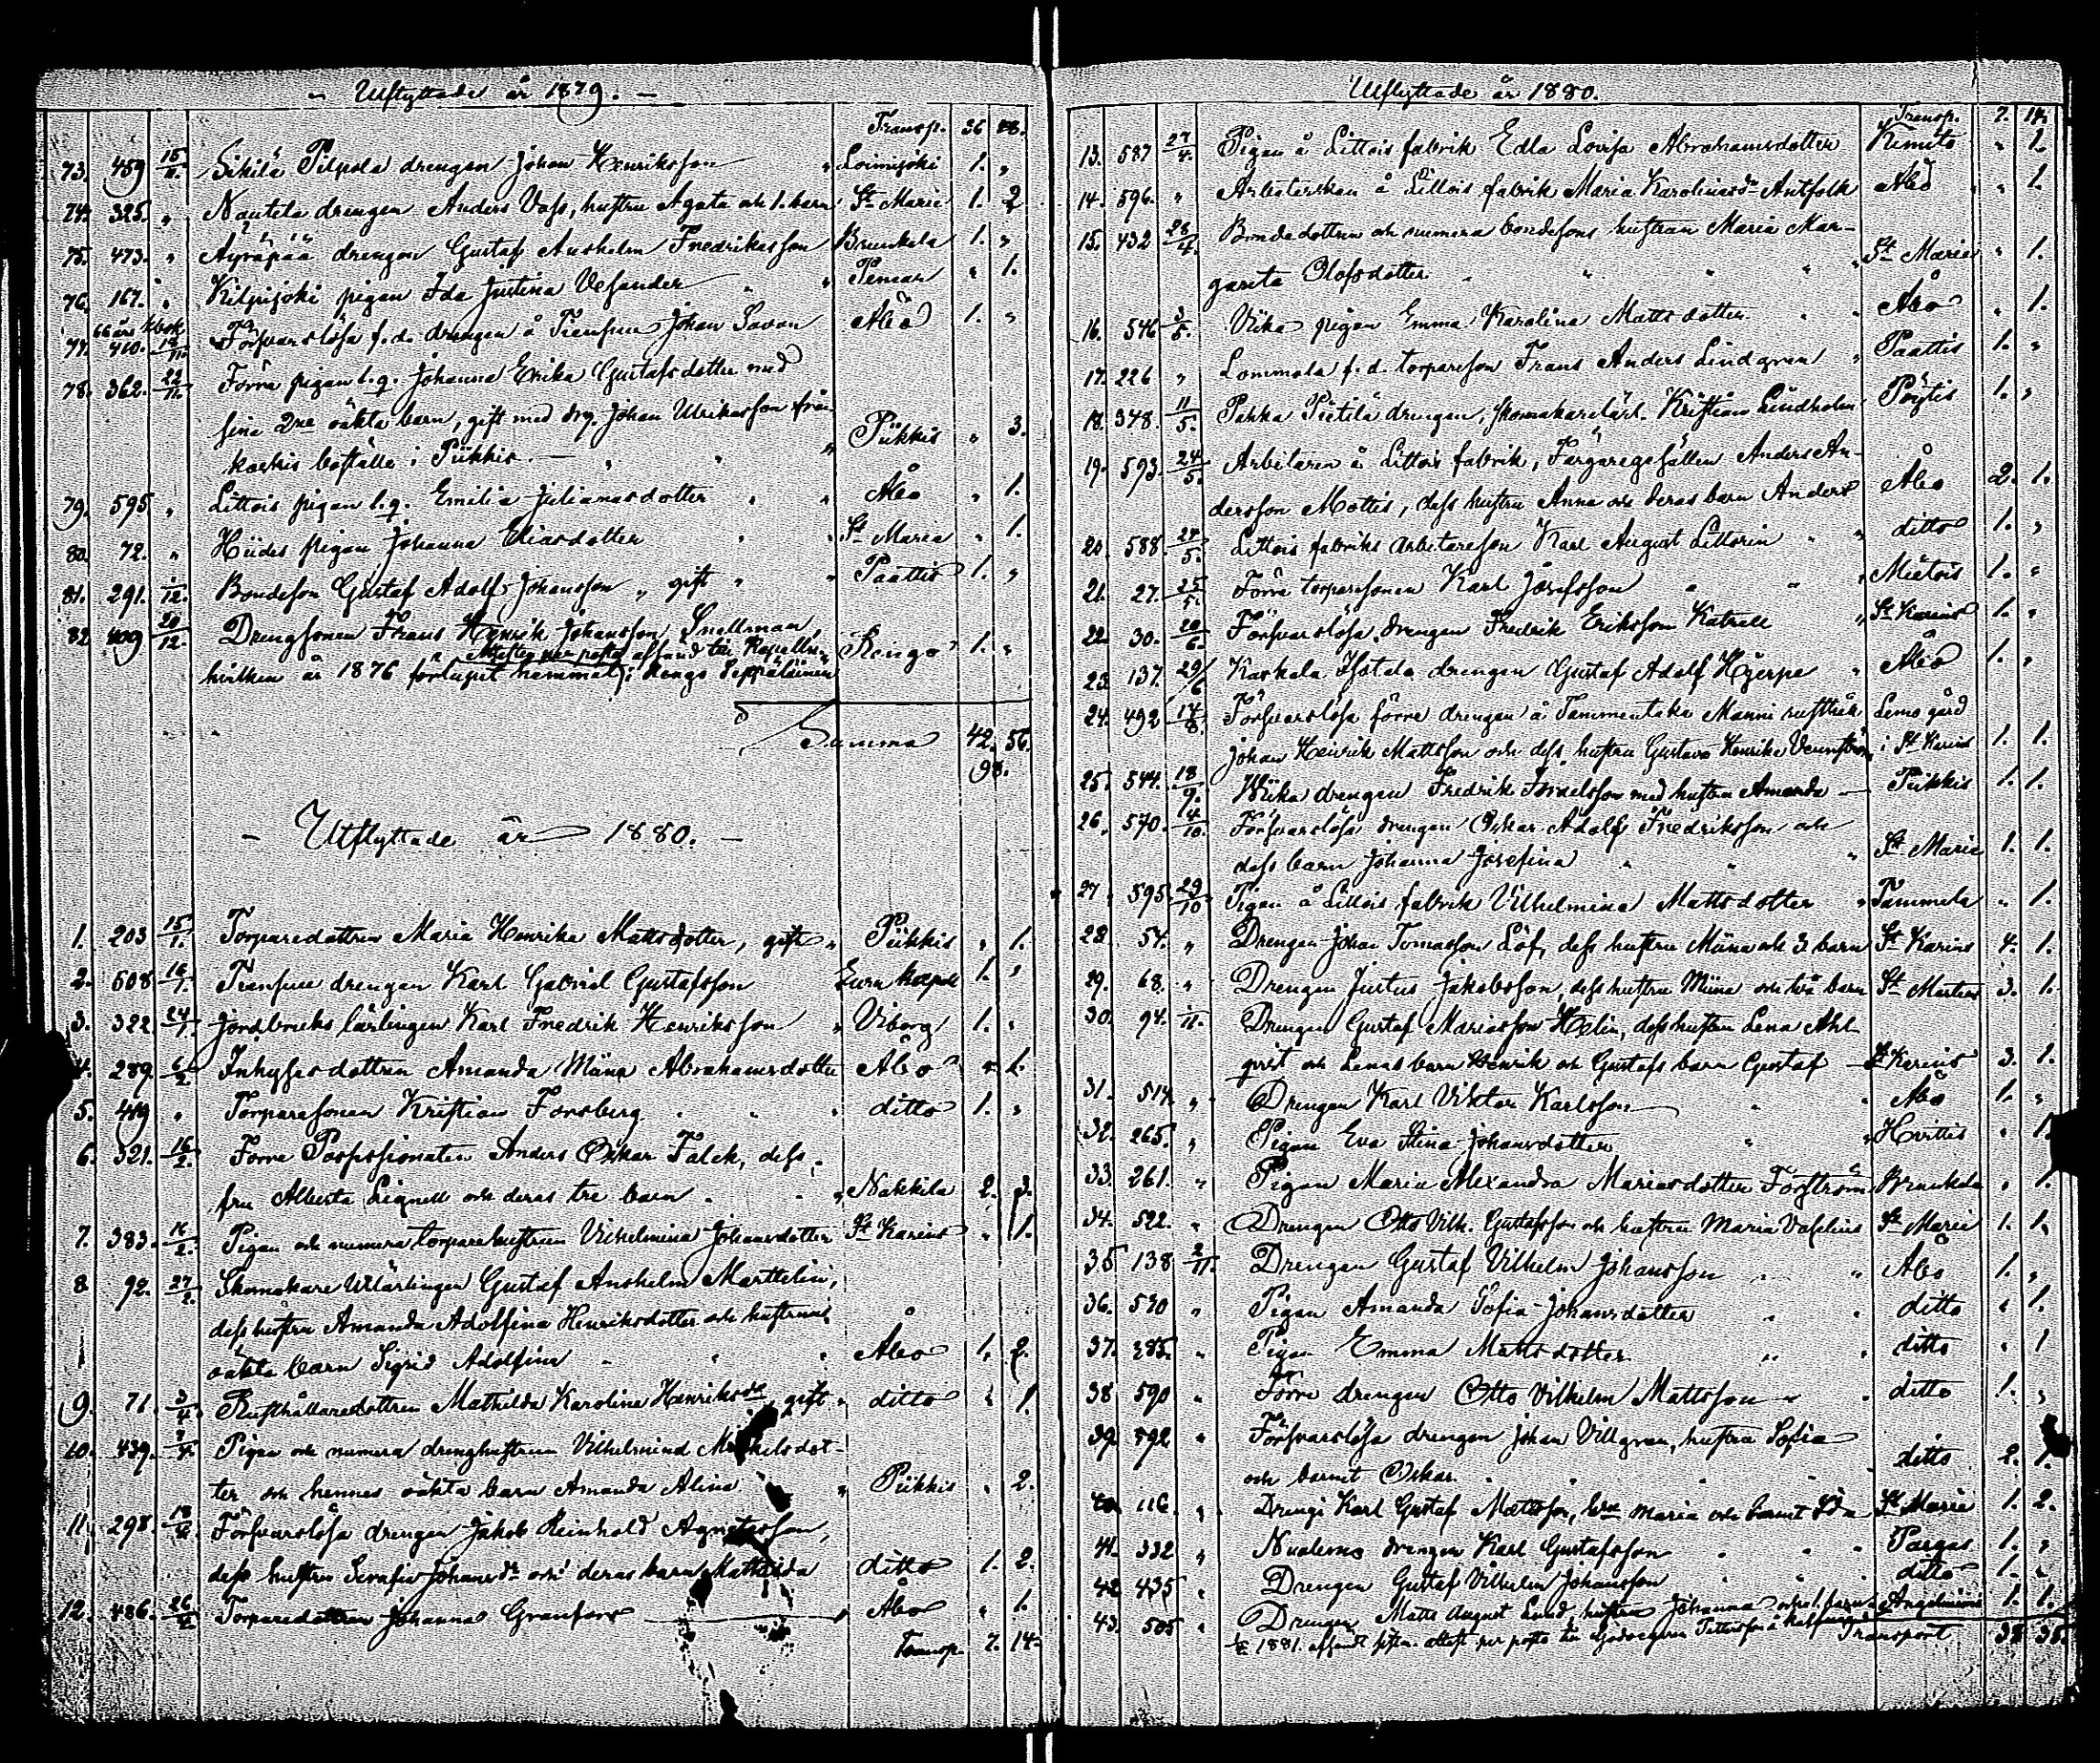 Utflyttade år 1879.
Transp. 36 28.
73. 459 15/11. Sikilä Pilpola drengen Johan Henriksson " Loimijoki 1. "
74. 325. " Nautela drengen Anders Vass, hustru Agata och 1. barn St Marie 1. 2
75. 473. " Äyräpää drengen Gustaf Anshelm Fredriksson Brunkala 1. "
76. 167. " Kilpijoki pigan Ida Justina Vesander " " Pemar " 1.
77. 410. 18/11. Försvarslösa f.d. drengen å Tiensuu Johan Savan Åbo 1. "
78. 362. 22/11. Förra pigan l.q. Johanna Erika Gustafsdotter med
sina 2ne oäkta barn, gift med drg. Johan Ulriksson från
boställe i Piikkis. " " Piikkis " 3.
79. 595 " Littois pigan l.q. Emilia Julianasdotter " " Åbo " 1.
80. 72. " Hiides pigan Johanna Eliasdotter " " St Maria " 1.
81. 291. 1/12. Bondeson Gustaf Adolf Johansson " gift " " Paattis 1. "
82. 409 20/12. Drengsonen Frans Henrik Johansson Snellman,
hvilken år 1876 förlupit hemmet, Kengo 1. "
Summa 42. 56.
98.
- Utflyttade år 1880. -
1. 203 15/1. Torparedottren Maria Henrika Mattsdotter, gift " Piikkis " 1.
2. 508 16/1. Tiensuu drengen Karl Gabriel Gustafsson Eura kapell 1. "
3. 322 24/1. Jordbruks lärlingen Karl Fredrik Henriksson " Viborg 1. "
4. 289. 6/2. Inhyses dottren Amanda Miina Abrahamsdotter Åbo " 1.
5. 419 " Torparesonen Kristian Forsberg " " ditto 1. "
6. 321. 16/2. Förre Possessionaten Anders Oskar Falck, dess
fru Alberta Lignell och deras tre barn " " Nakkila 2. 3.
7. 383. 16/2. Pigan och numera torparehustrun Vilhelmina Johansdotter St Karins " 1.
8 92. 27/2. Skomakare lärlingen Gustaf Anshelm Marttelin,
dess hustru Amanda Adolfina Henriksdotter och hustruns
oäkta barn Sigrid Adolfina " " Åbo 1. 2.
9. 71. 3/4. Rusthållaredottren Mathilda Karolina Henriksdr, gift " ditto " 1.
10. 439. 7/4. Pigan och numera drenghustrun Vilhelmina Mickelsdot-
ter och hennes oäkta barn Amanda Alina " Piikkis " 2.
11. 298 18/4. Försvarslösa drengen Jakob Reinhold Agnetasson,
dess hustru Serafia Johansdr och deras barn Mathilda ditto 1. 2.
12. 486. 26/4. Torparedottren Johanna Granfors Åbo " 1.
Transp. 7. 14.
Utflyttade år 1880.
Transp. 7. 14.
13. 587 27/4. Pigan å Littois fabrik Edla Lovisa Abrahamsdotter Kimito " 1.
14. 596. " Arbeterskan å Littois fabrik Maria Karolinasdr Antfolk Åbo " 1.
15. 432 28/4. Bondedottren och numera bondesons hustrun Maria Mar-
gareta Olofsdotter " " " " St Marie " 1.
16. 546 3/5. Vika pigan Emma Karolina Mattsdotter " " Åbo " 1.
17. 226 " Lommala f.d. torpareson Frans Anders Lindgren " Paattis 1. "
18. 348. 11/5. Pahka Pietilä drengen, skomakarelärl. Kristian Lindholm Pöytis 1. "
19. 593. 24/5. Arbetaren å Littois fabrik, Färgaregesällen Anders An-
dersson Mottis, dess hustru Anna och deras barn Anders Åbo 2. 1.
20. 588 24/5. Littois fabriks arbetareson Karl August Littorin " " ditto 1. "
21. 27. 25/5. Förra torparesonen Karl Josefsson " " " Mietois 1. "
22. 30. 20/6. Försvarslösa drengen Fredrik Eriksson Katrell " St Karins 1. "
23. 137. 29/6 Karkala Isotalo drengen Gustaf Adolf Hjerpe " Åbo 1. "
24. 492 14/8. Försvarslösa förre drengen å Tammentaka Manni rusthåll Lemo gård
Johan Henrik Mattsson och dess hustru Gustava Henrika Vennström i St Karins 1. 1.
25. 544. 18/9. Wika drengen Fredrik Israelsson med hustru Amanda — Piikkis 1. 1.
26. 570. 14/10. Försvarslösa drengen Oskar Adolf Fredriksson och
dess barn Johanna Josefina " " " St Marie 1. 1.
27. 595. 29/10. Pigan å Littois fabrik Vilhelmina Mattsdotter " Tammela " 1.
28. 54. " Drengen Johan Tomasson Löf, dess hustru Miina och 3 barn St Karins 4. 1.
29. 68. " Drengen Justus Jakobsson, dess hustru Miina och två barn St Mårtens 3. 1.
30. 94. 1/11. Drengen Gustaf Mariasson Helin, dess hustru Lena Ahl-
qvist och Lenas barn Henrik och Gustafs barn Gustaf — St Karins 3. 1.
31. 514. " Drengen Karl Viktor Karlsson " " Åbo 1. "
32. 265. " Pigan Eva Stina Johansdotter " " Hvittis " 1.
33. 261. " Pigan Maria Alexandra Mariasdotter Forsström Brunkala " 1.
34. 522. " Drengen Otto Vilh. Gustafsson och hustru Maria Vaselius St Marie 1. 1.
35 138 2/11. Drengen Gustaf Vilhelm Johansson " " Åbo 1. "
36. 570 " Pigan Amanda Sofia Johansdotter " " ditto " 1.
37. 285. " Pigan Emma Mattsdotter " " ditto " 1
38 590 " Förre drengen Otto Vilhelm Mattsson " " ditto 1. "
39 592 " Försvarslösa drengen Johan Villgren, hustru Sofia
och barnet Oskar. " " " " ditto 2. 1.
40 116. " Dreng Karl Gustaf Mattsson, hru Maria och barnet Ida St Marie 1. 2.
41. 332 " Nuolemo drengen Karl Gustafsson " " " Pargas 1. "
42 435 " Drengen Gustaf Vilhelm Johansson " " ditto 1. "
43. 505 " Drengen Matts August Lund, hustru Johanna och 1. barn Angelniemi 1. 1.
1881. afsändt per posto till Transport 38 35.